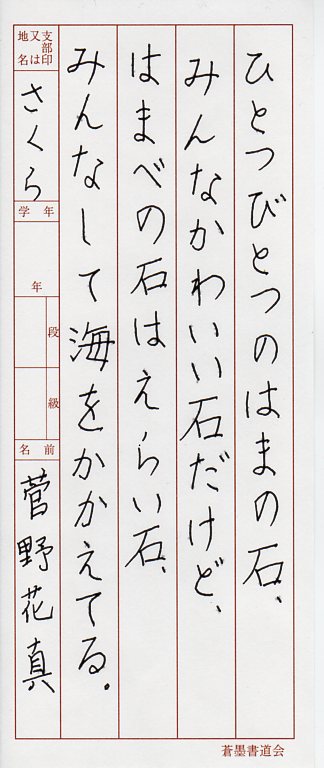 ひとつびとつのはまの石、
みんなかわいい石だけど、
はまべの石はえらい石、
みんなして海をかかえてる。
支部印
又は
地名
さくら
学年
年
段
級
名前
菅野花真
蒼墨書道会